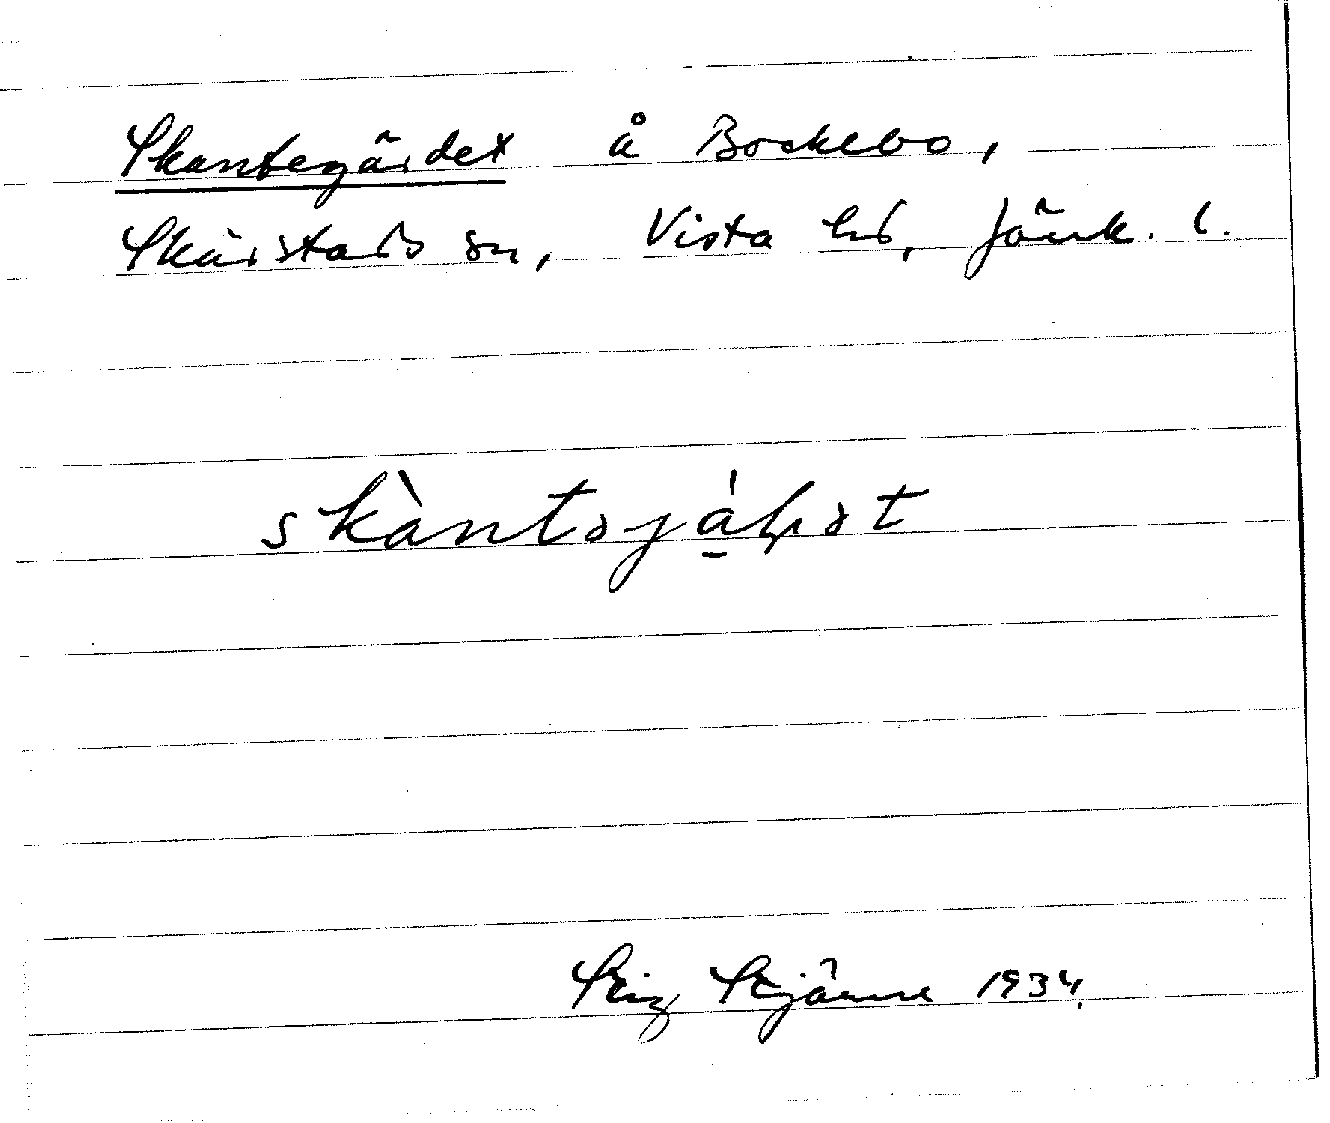 Skantegärdet å Bockebo,
Skärstads sn, Vista hd, Jönk. l.
skàntəjá̠ḷət
Stig Stjärne 1934.